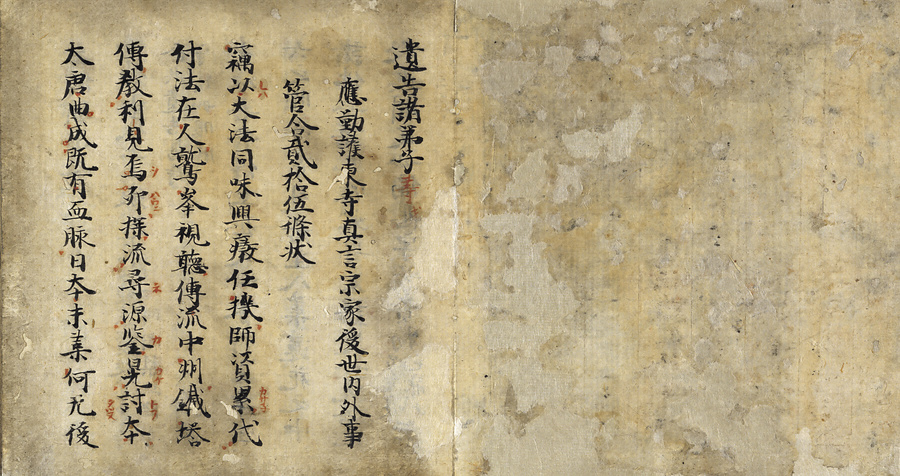 遺告諸弟子等
應勤護東寺真言宗家後世内外事
管合貳拾伍條状
竊以大法同味興癈任機師資累代
付法在人鷲峯視聽傳流中州鐵塔
傳教利見焉卯探流尋源鉴晃討夲
大唐曲成既有血脉日夲未葉何无後